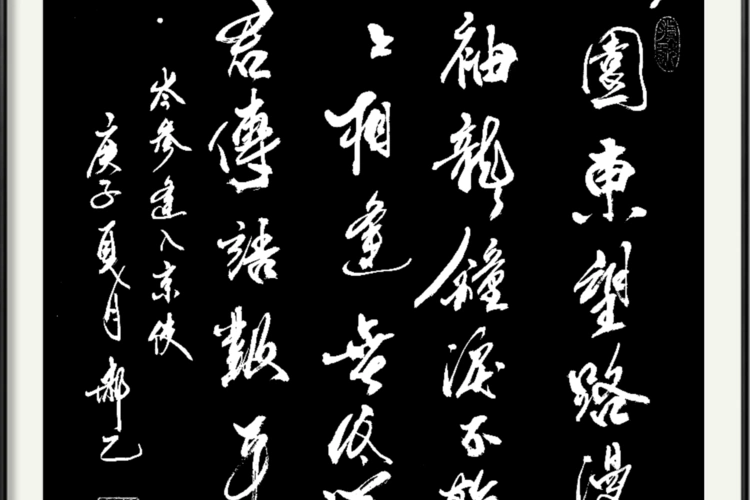 園東望路漫
袖龍鐘淚不乾
上相逢無紙
君傳語報平
岑參逢入京使
庚子夏月郝乙